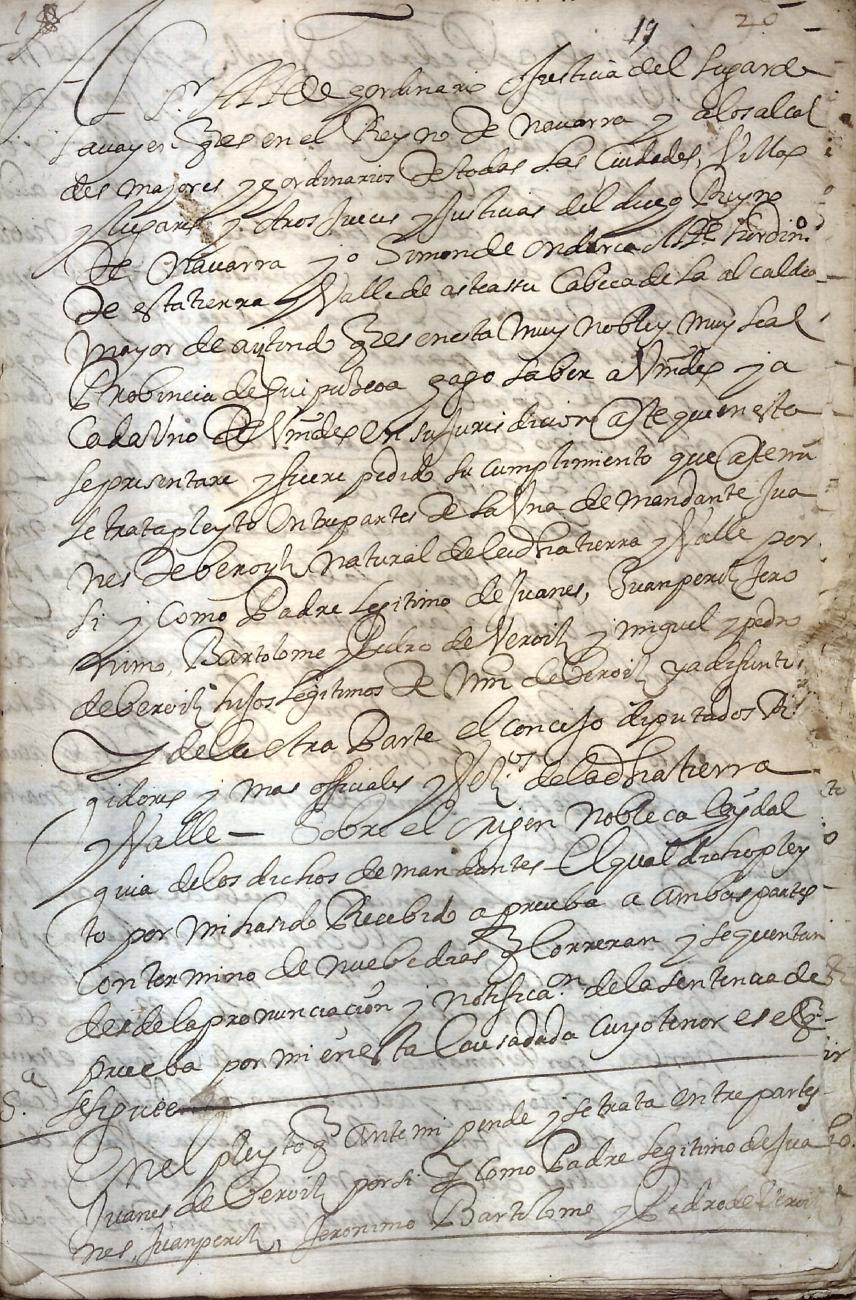 19 20
Sr Allde hordinario Justicia del Lugar de
Lavayen q es en el Reyno de Navarra y a los alcal
des mayores y hordinarios de todas las Ciudades, Villas
y lugares y otros Jueces y Justicias del dicho Reyno
de Navarra yo Simon de ondarca Allde hordino
de esta tierra y Valle de asteasu Cabeca de la alcaldia
mayor de aytondo q es en esta muy noble y muy Leal
Probincia de Guipuzcoa hago saber a Vmdes y a
Cada Uno de Vmdes en su Jurisdicion ante quien esta
se presentare y fuere pedido su cumplimiento que ante mi
se trata pleyto entre partes de la Una demandante Jua
nes de beroyz natural de la dha tierra y Valle por
si y como Padre legitimo de Juanes, Juanperiz Jero
nimo Bartolome y Pedro de Veroiz y miguel y pedro
de beroiz hijos legitimos de de beroiz ya difunto
y de la otra Parte el concejo diputados Re
gidores y mas officiales y Vezos de la dha tierra
y Valle – Sobre el orijen nobleca e ydal
guia de los dichos demandantes – El qual dicho pley
to por mi ha sido Recebido a prueba a ambas partes
con termino de nuebe dias q Correran y se quentan
desde la pronunciacion y notificaon de la sentencia de
prueba por mi en esta Causa dada cuyo tenor es el q
se sigue
Sa
En el pleyto q Ante mi pende y se trata entre partes
Juanes de beroiz por si y como Padre legitimo de Jua
nes, Juanperiz, Jeronimo Bartolome y Pedro de Veroiz